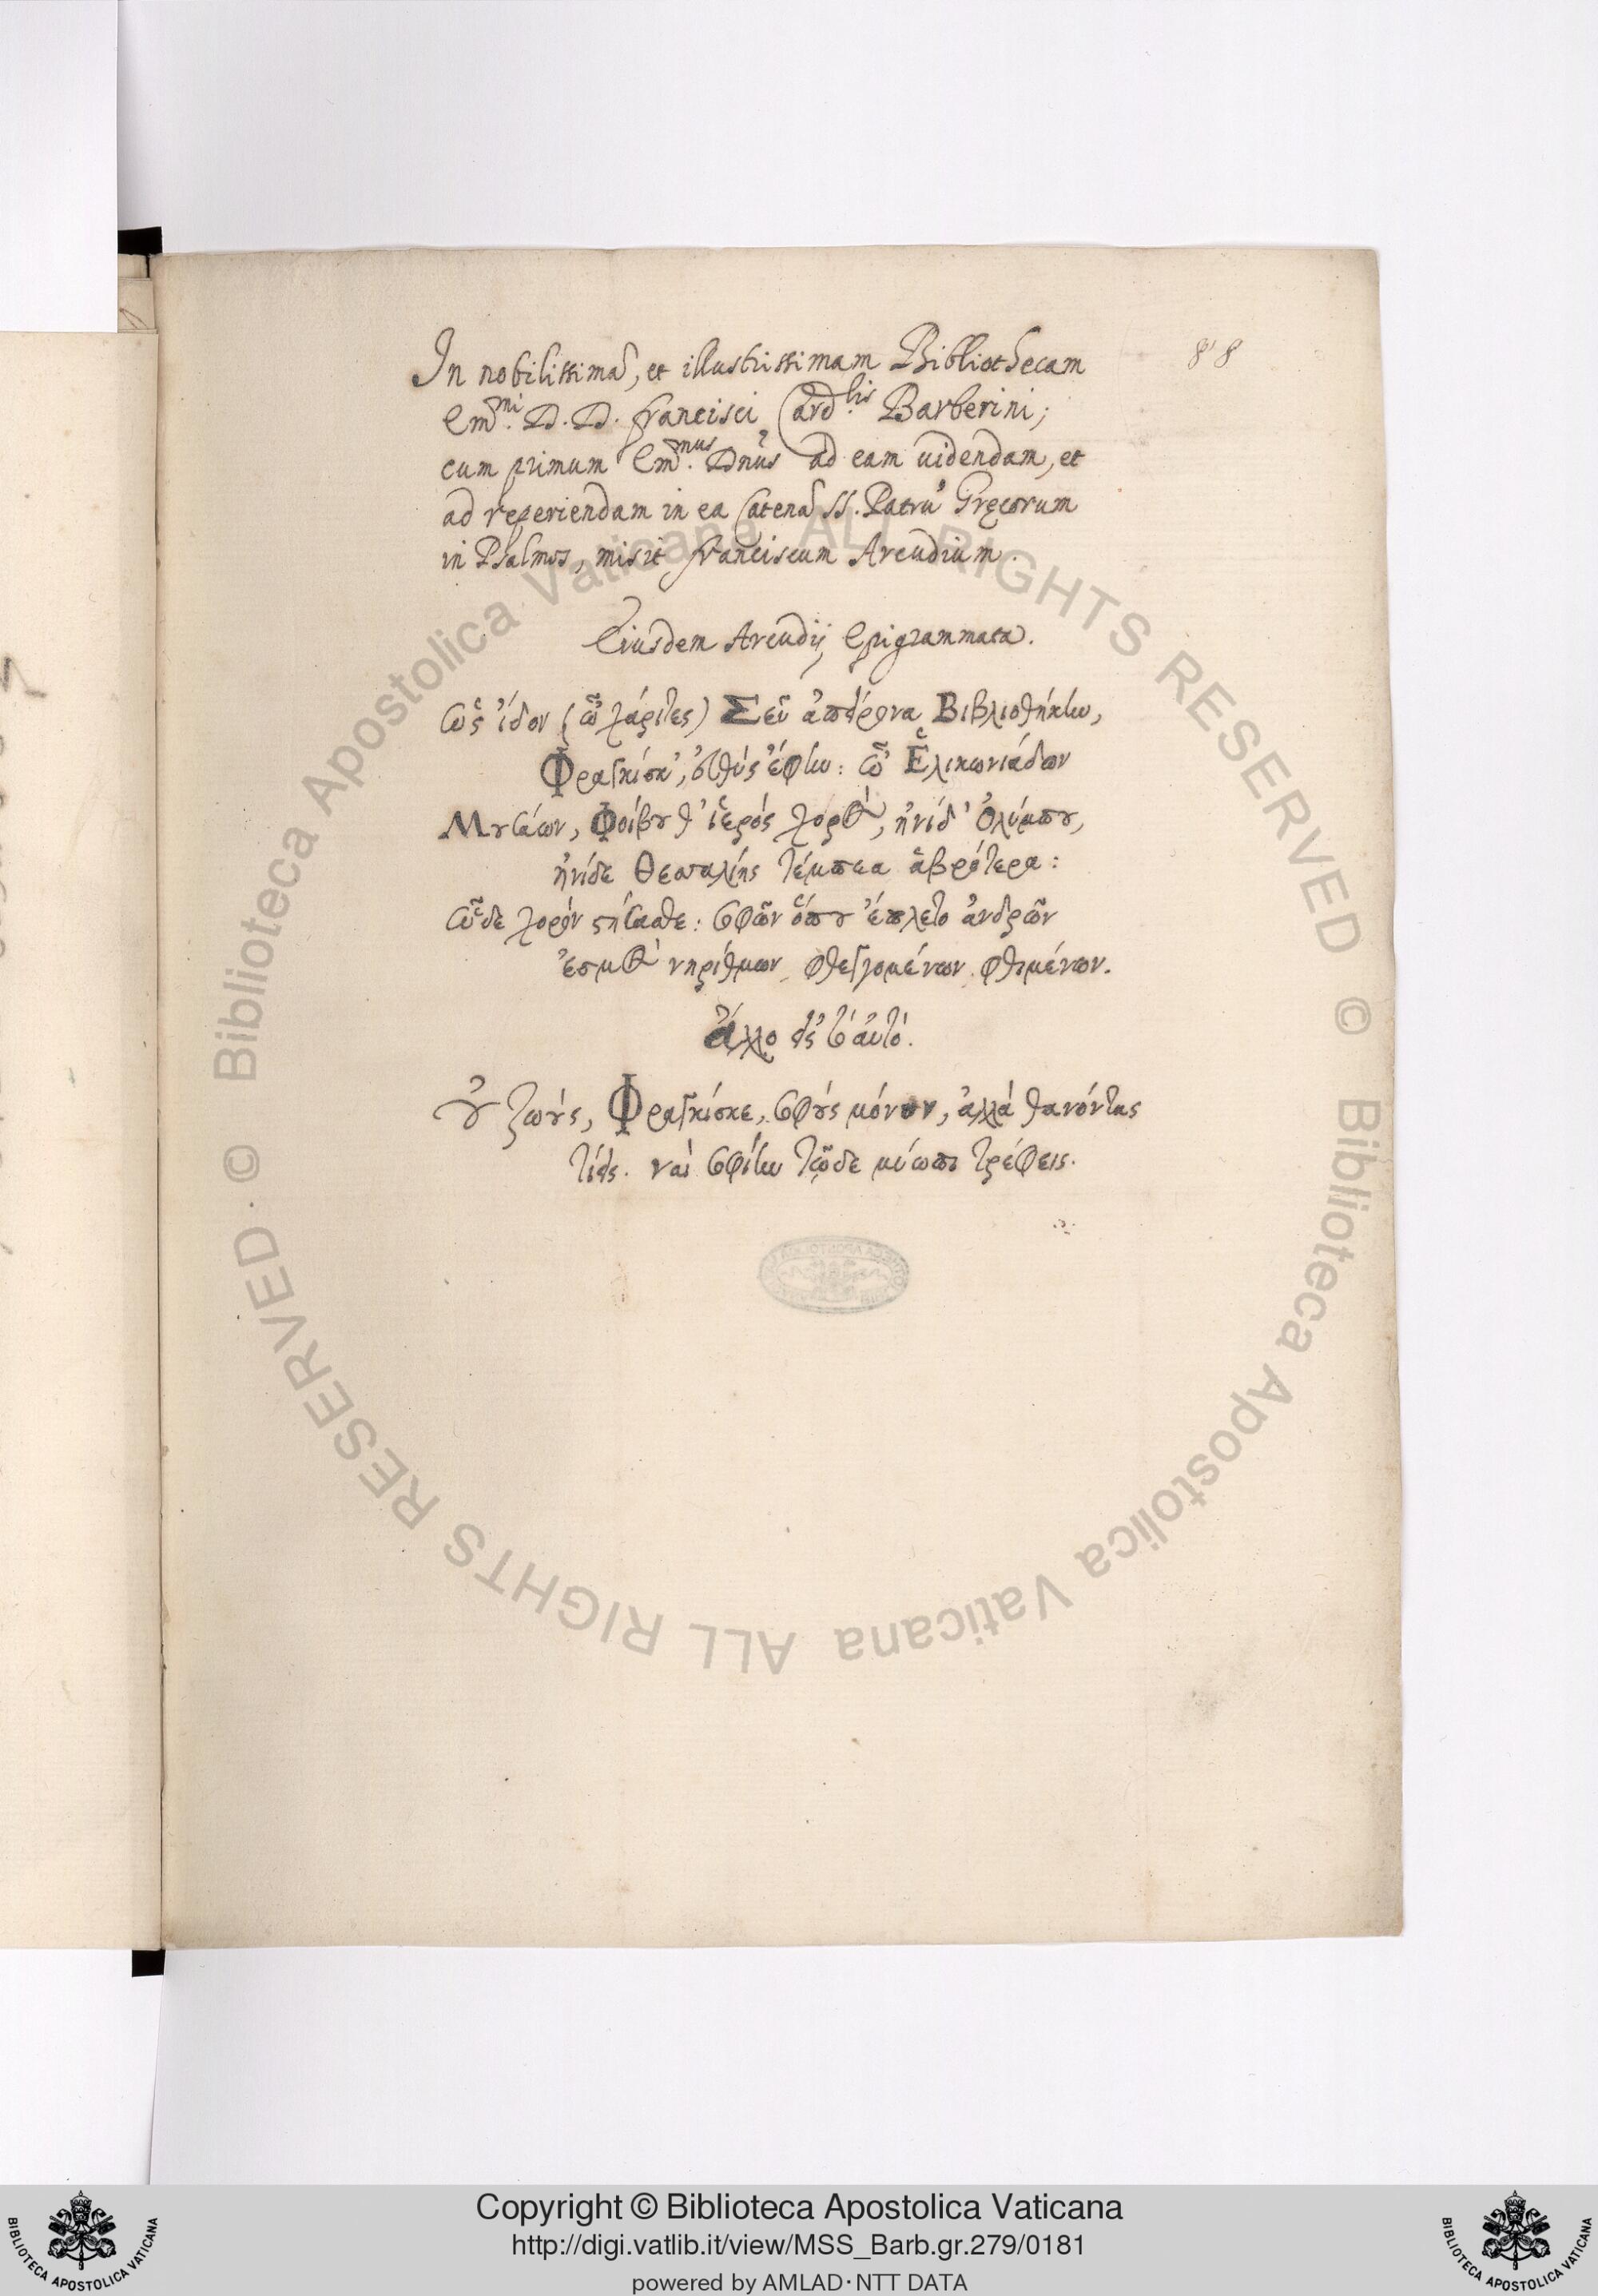 88
In nobilissimã, et illustrissimam Bibliothecam
Em̃.mi D. D. Francisci Card.lis Barberini;
cum primum Em̃.mus Dñus ad eam uidendam, et
ad reperiendam in ea Catenã SS. Patrũ Gręcorum
in Psalmos, misit Franciscum Arcudium.
Eiusdem Arcudij Epigrammata.
Ὡς ἴδον (ὦ Χάριτες) Σεῦ ἀπείρονα Βιβλιοθήκην,
Φραγκίσκ', εὐθὺς ἔφην: ὦ Ἑλικωνιάδων
Μουσάων, Φοίβου θ' ἱερὸς χορὸς, ἠνίδ' Ὀλύμπου,
ἠνίδε Θεσσαλίης τέμπεα ἁβρότερα:
ὧδε χορὸν στήσασθε: σφῶν ὅπου ἔπλετο ἀνδρῶν
ἑσμὸς νηρίθμων φθεγγομένων φθιμένων.
ἄλλο εἰς τ' αὐτό.
οὐ ζωοὺς, Φραγκίσκε, σφοὺς μόνον, ἀλλὰ θανόντας
τίεις. ναὶ σφίσιν τῷδε τρέφεις.
Copyright © Biblioteca Apostolica Vaticana
http://digi.vatlib.it/view/MSS_Barb.gr.279/0181
powered by AMLAD·NTT DATA
BIBLIOTECA APOSTOLICA VATICANA
BIBLIOTECA APOSTOLICA VATICANA
© Biblioteca Apostolica Vaticana ALL RIGHTS RESERVED · © Biblioteca Apostolica Vaticana ALL RIGHTS RESERVED ·